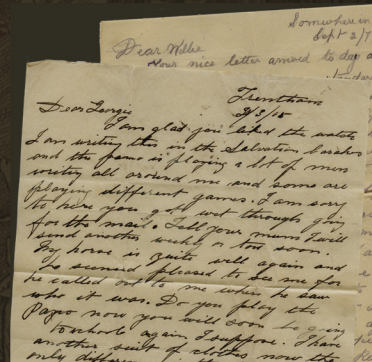 Somewhere in
Sept 2/
Dear Willie
Your nice letter arrived to day
Trentham
3/15
Dear Georgie
I am glad you liked the
I am writing this in the Salvation
and the is playing a lot of men
writing all around me and some are
playing different games. I am sorry
to hear you got wet through going
for the mail. Tell your mum I will
send another weekly or two soon.
My horse is quite well again and
he seemed pleased to see me for
he called out to me when he saw
who it was. Do you play the
now you will soon be going
to school again I suppose. I have
another suit of clothes now the
only